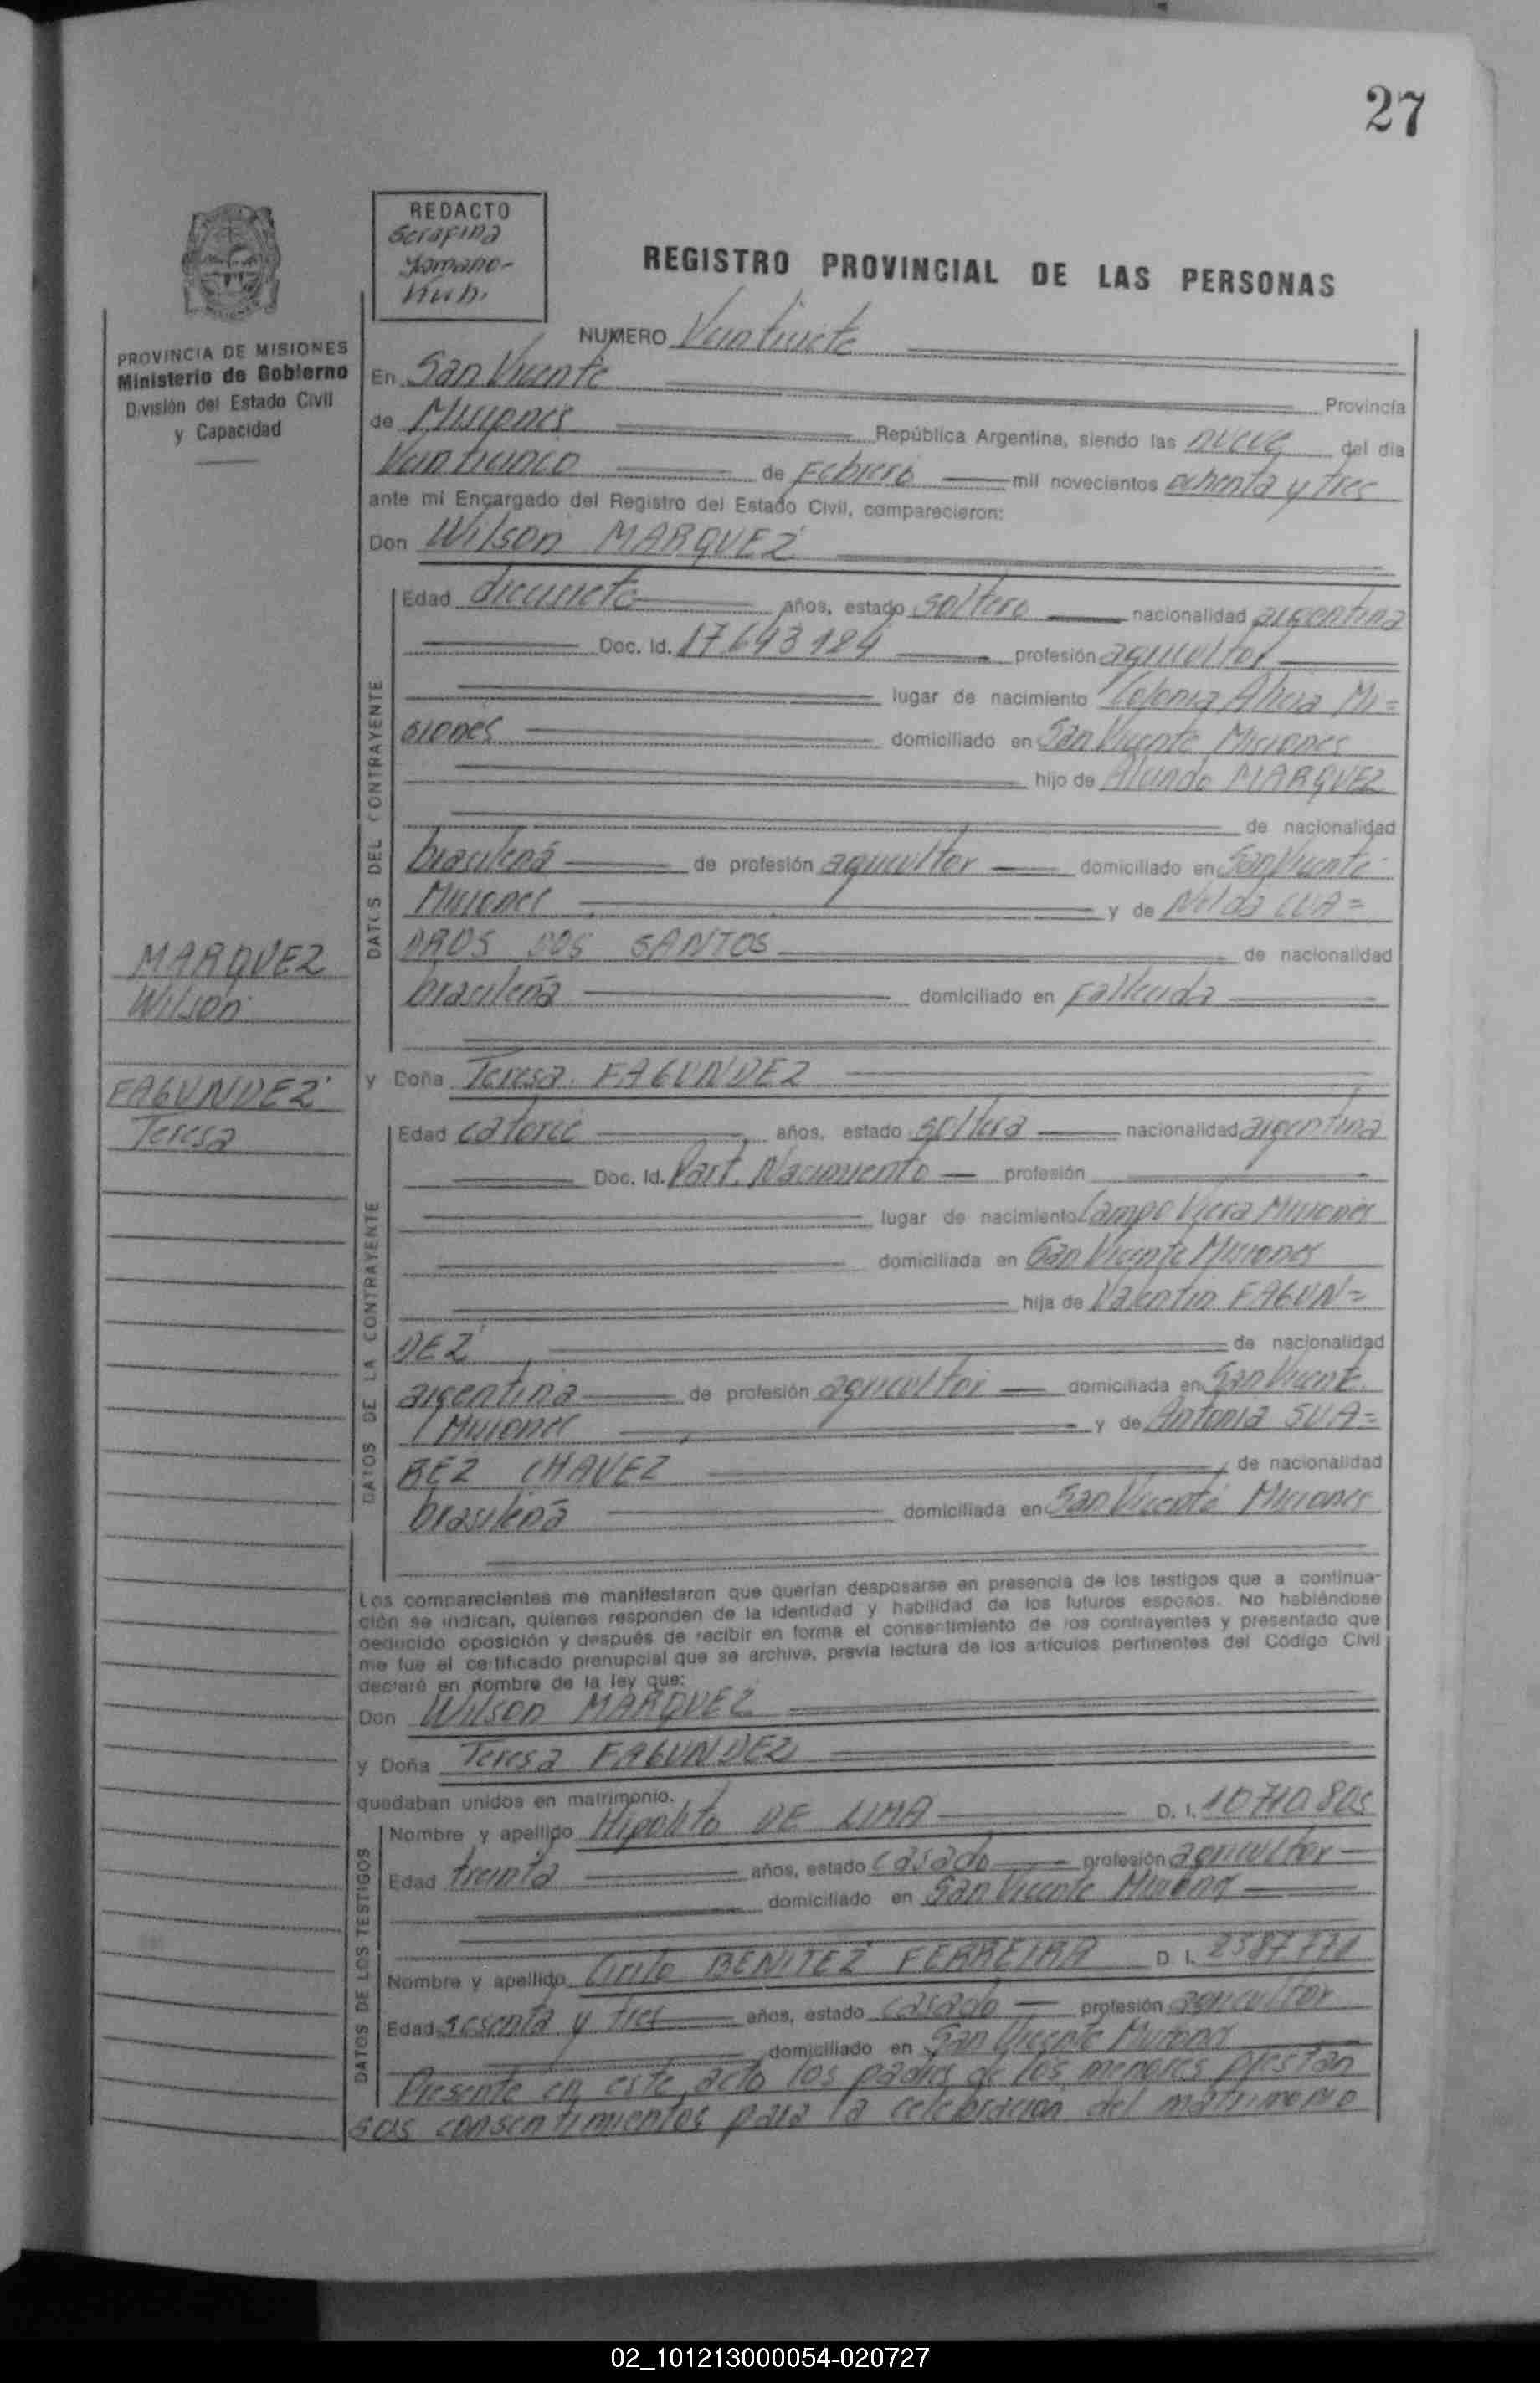 27
REDACTO
Serafina
Yamano-
REGISTRO PROVINCIAL DE LAS PERSONAS
PROVINCIA DE MISIONES
Ministerio de Gobierno
División del Estado Civil
y Capacidad
NUMERO Veintisiete
En San Vicente Provincia
de Misiones República Argentina, siendo las nueve del día
Veinticinco de Febrero mil novecientos ochenta y tres
ante mi Encargado del Registro del Estado Civil, comparecieron:
Don Wilson MARQUEZ
DATOS DEL CONTRAYENTE
Edad diecisiete años, estado soltero nacionalidad argentina
Doc. Id. 17643124 profesión agricultor
lugar de nacimiento Colonia Alicia Mi=
siones domiciliado en San Vicente Misiones
hijo de MARQUEZ
de nacionalidad
brasileña de profesión agricultor domiciliado en San Vicente
Misiones y de Nelda CUA=
DROS DOS SANTOS de nacionalidad
brasileña domiciliado en Fallecida
MARQUEZ
Wilson
FAGUNDEZ
Teresa
y Doña Teresa FAGUNDEZ
DATOS DE LA CONTRAYENTE
Edad catorce años, estado soltera nacionalidad argentina
Doc. Id. Part. Nacimiento profesión
lugar de nacimiento Campo Viera Misiones
domiciliada en San Vicente Misiones
hija de Valentin FAGUN=
DEZ de nacionalidad
argentina de profesión agricultor domiciliada en San Vicente
Misiones y de Antonia SUA=
REZ CHAVEZ de nacionalidad
brasileña domiciliada en San Vicente Misiones
Los comparecientes me manifestaron que querían desposarse en presencia de los testigos que a continua-
ción se indican, quienes responden de la identidad y habilidad de los futuros esposos. No habiéndose
deducido oposición y después de recibir en forma el consentimiento de los contrayentes y presentado que
me fue el certificado prenupcial que se archiva, previa lectura de los artículos pertinentes del Código Civil
declaré en nombre de la ley que:
Don Wilson MARQUEZ
y Doña Teresa FAGUNDEZ
quedaban unidos en matrimonio.
DATOS DE LOS TESTIGOS
Nombre y apellido Hipolito DE LIMA D. I. 10710805
Edad treinta años, estado casado profesión agricultor
domiciliado en San Vicente Misiones
Nombre y apellido Cirilo BENITEZ FERREIRA D. I. 2387771
Edad sesenta y tres años, estado casado profesión agricultor
domiciliado en San Vicente Misiones
Presente en este acto los padres de los menores prestan
sus consentimientos para la celebracion del matrimonio
02_101213000054-020727